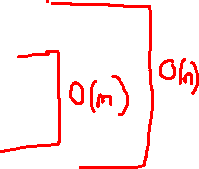 O(m)
O(n)